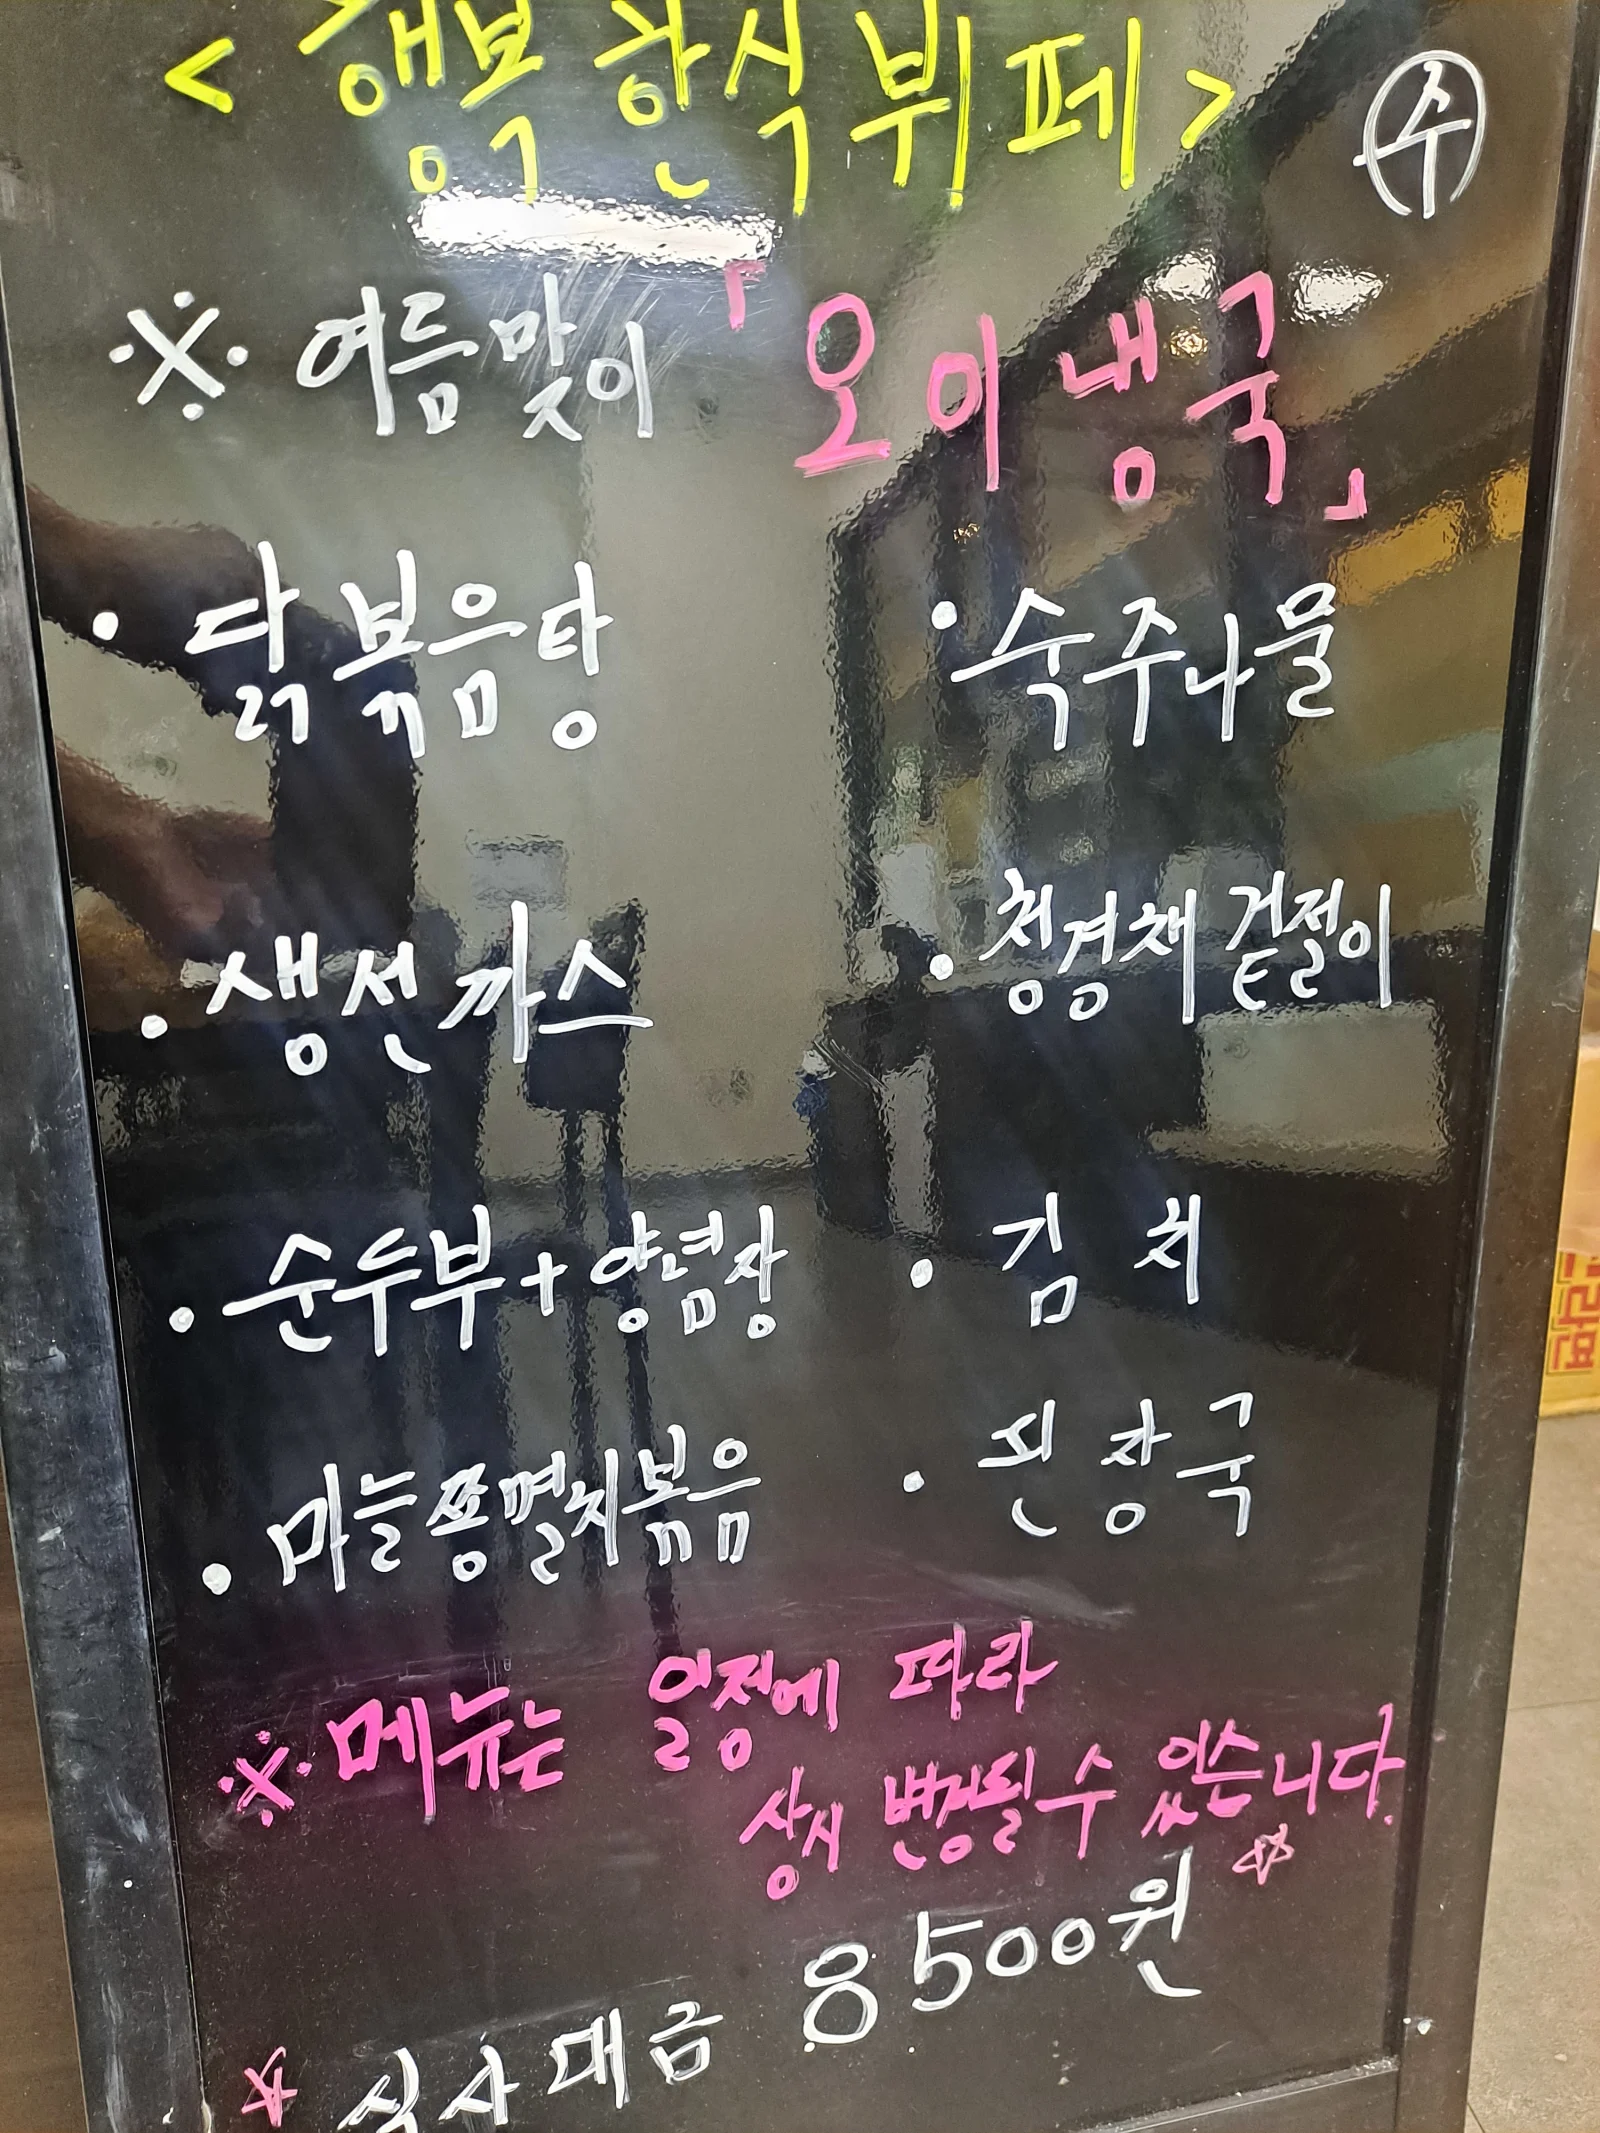 <행복 한식뷔페> ㊌
※ 여름맞이 「오이냉국」
· 닭볶음탕
· 숙주나물
· 생선까스
· 청경채 겉절이
· 순두부+양념장
· 김치
· 마늘쫑멸치볶음
· 된장국
※ 메뉴는 일정에 따라
상시 변경될 수 있습니다.
☆ 식사대금 8500원 ☆
라면